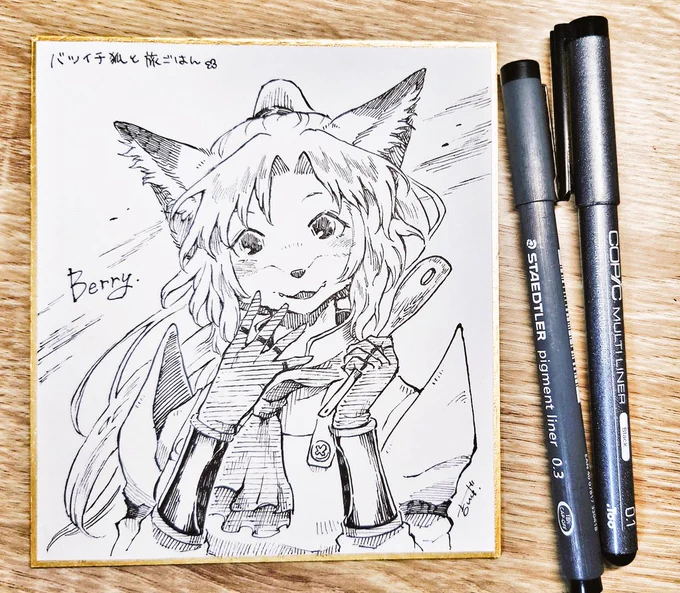 バツイチ狐と旅ごはん
Berry.
STAEDTLER pigment liner 0.3
COPIC MULTI LINER
Black
0.1